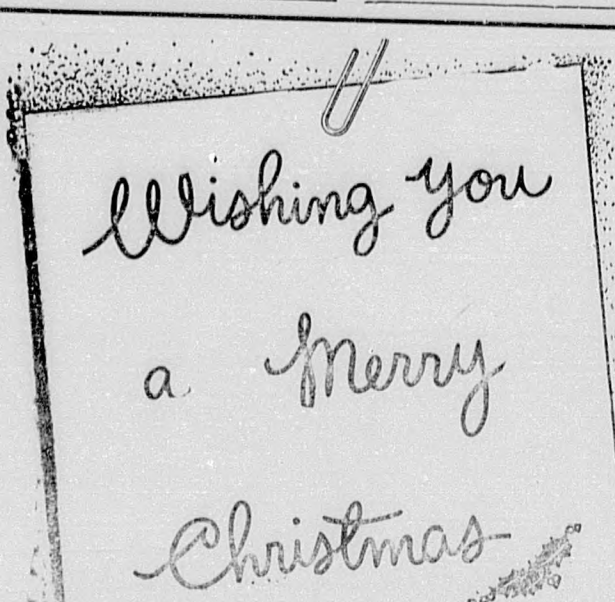 Wishing you
a Merry
Christmas